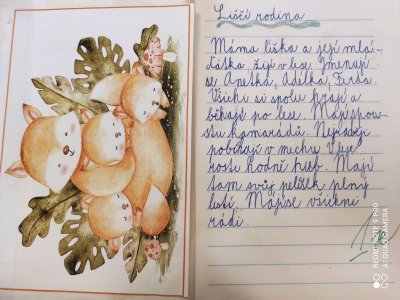 Liščí rodina
Máma liška a její mlá-
ďátka, žijí v lese. Jmenují
se Anetka, Adélka, Firka.
Všichni si spolu hrají a
běhají po lese. Mají spou-
stu kamarádů. Nejraději
pobíhají v mechu, kde
roste hodně hub. Mají
tam svůj pelíšek plný
listí. Mají se všichni
rádi.
REDMI NOTE 9 PRO
AI QUAD CAMERA